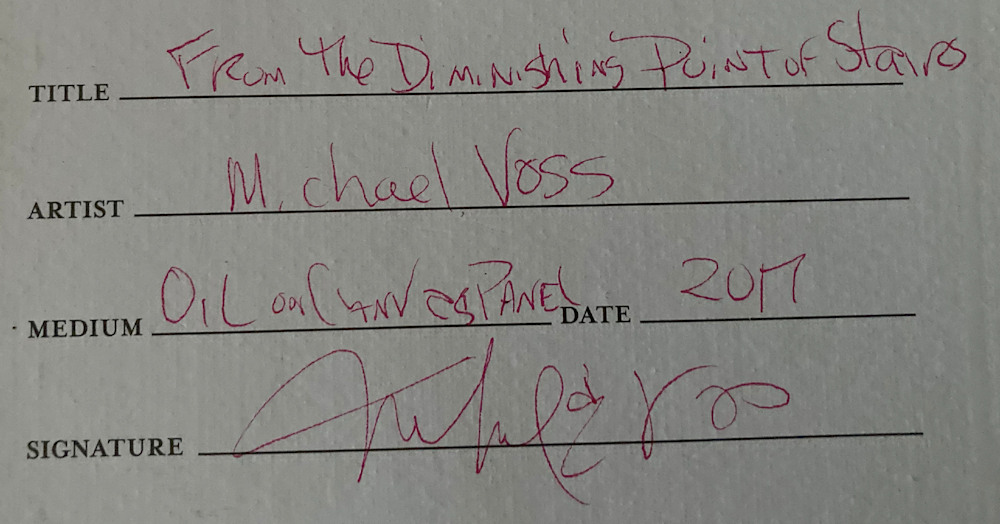 TITLE From the Diminishing Point of Stairs
ARTIST Michael Voss
MEDIUM Oil on Canvas Panel DATE 2017
SIGNATURE Michael Voss